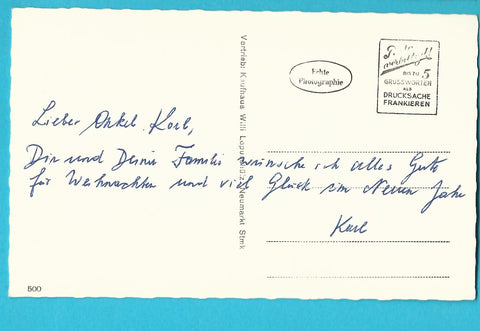 Lieber Onkel Karl,
Dir und Deiner Familie wünsche ich alles Gute
für Weihnachten und viel Glück im Neuen Jahr
Karl
Vertrieb: Kaufhaus Willi Neumarkt Stmk
Echte
Photographie
BIS ZU 5
GRUSSWORTEN
ALS
DRUCKSACHE
FRANKIEREN
500